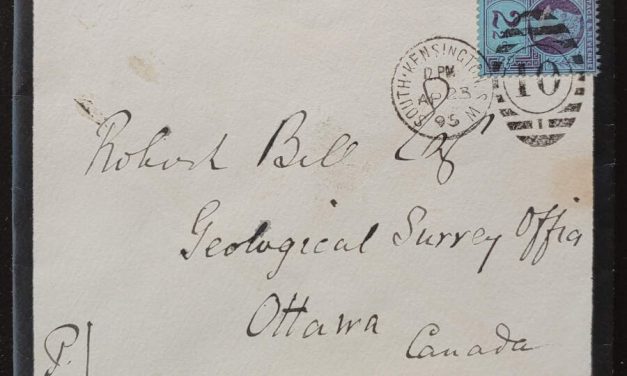 SOUTH·KENSINGTON S.W
12 PM
AP 23
95
10
Robert Bell Esq
Geological Survey Office
Ottawa
Canada
P.